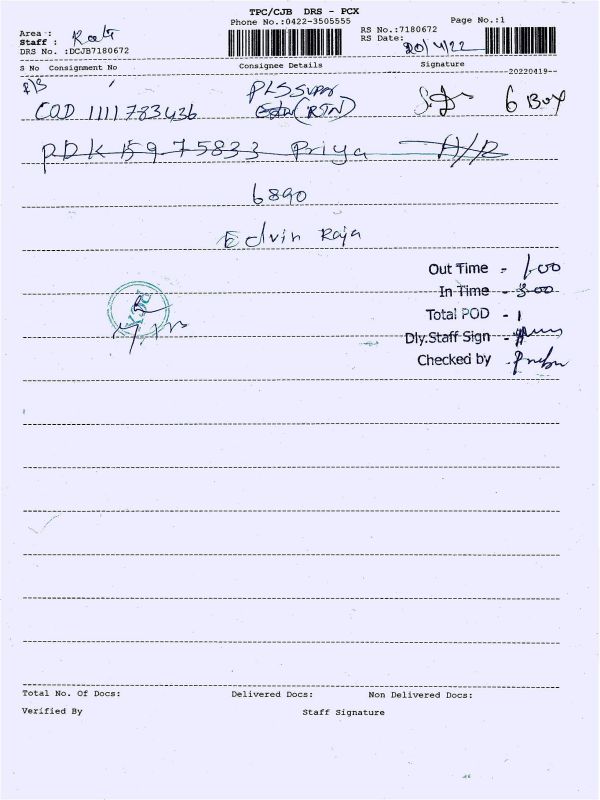 TPC/CJB DRS - PCX
Phone No.:0422-3505555
Page No.:1
Area :
Staff :
DRS No. :DCJB7180672
RS No.:7180672
RS Date:
20/4/22
S No Consignment No Consignee Details Signature --20220419--
P/S
COD 1111783436 (RTN) 6 Box
PDK 15975833 Priya A/B
6890
Edvin Raja
Out Time - 1.00
In Time - 3.00
Total POD - 1
Dly.Staff Sign -
Checked by -
Total No. Of Docs: Delivered Docs: Non Delivered Docs:
Verified By Staff Signature